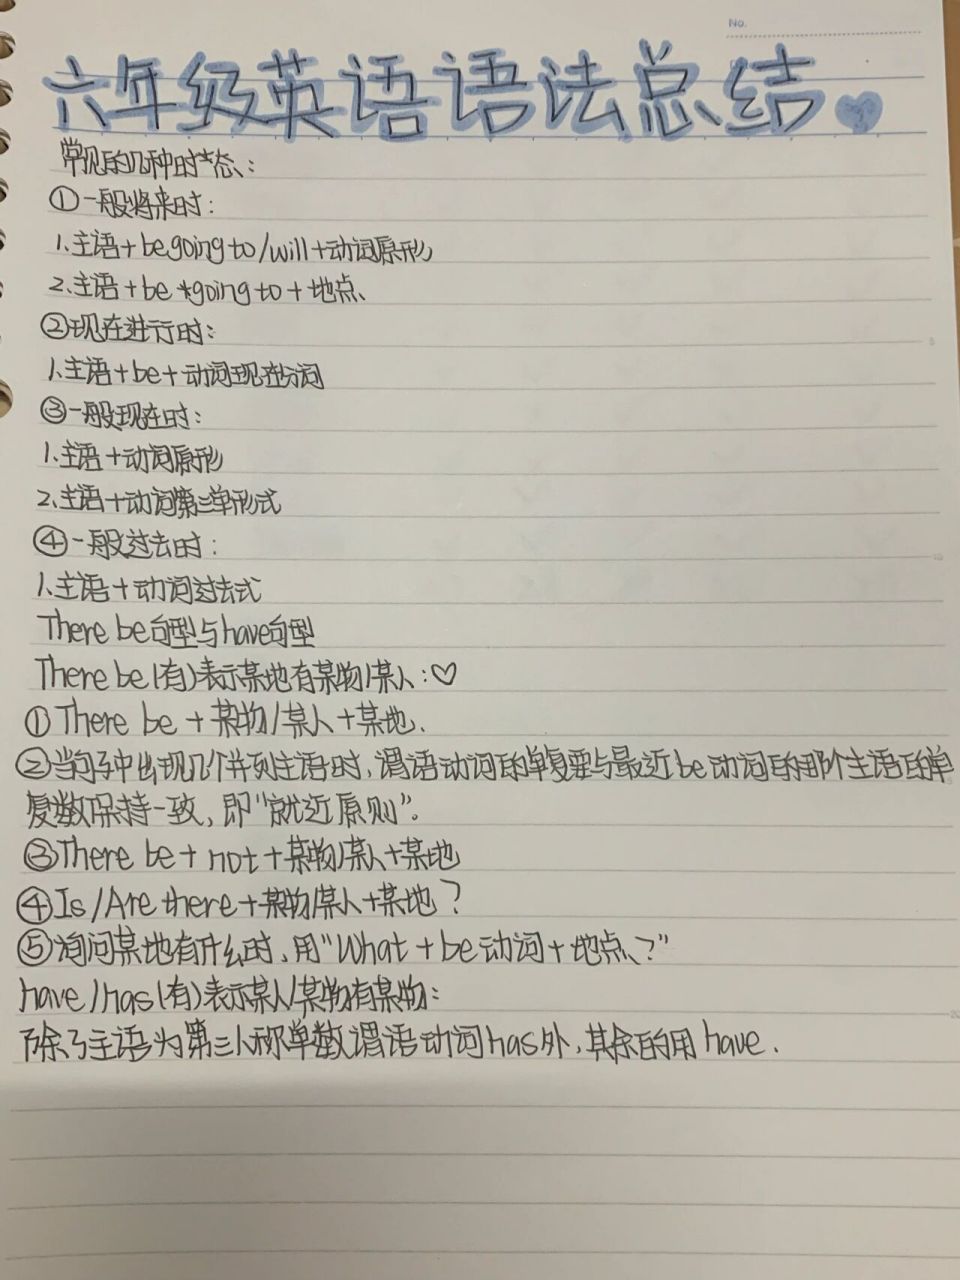 No.
六年级英语语法总结
常见的几种时态:
①一般将来时:
1.主语+be going to/will+动词原形
2.主语+be *going to+地点、
②现在进行时:
1.主语+be+动词现在分词
③一般现在时:
1.主语+动词原形
2.主语+动词第三单形式
④一般过去时:
1.主语+动词过去式
There be句型与have句型
There be(有)表示某地有某物/某人:♡
①There be+某物/某人+某地.
②当句子中出现几个并列主语时,谓语动词的单复要与最近be动词的那个主语的单
复数保持一致,即“就近原则”。
③There be+not+某物/某人+某地
④Is/Are there+某物/某人+某地?
⑤询问某地有什么时,用“What+be动词+地点、?”
have/has(有)表示某人/某物有某物:
除了主语为第三人称单数谓语动词has外,其余的用have.